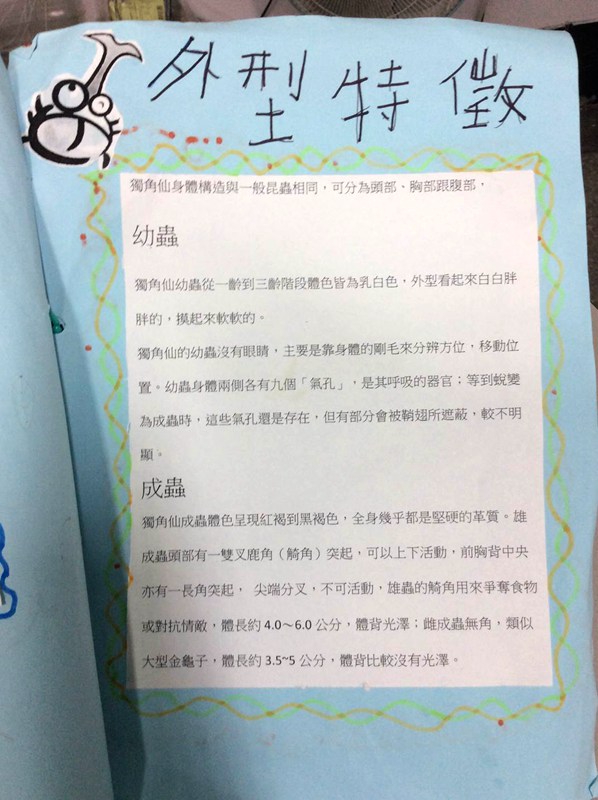 外型特徵
獨角仙身體構造與一般昆蟲相同，可分為頭部、胸部跟腹部，
幼蟲
獨角仙幼蟲從一齡到三齡階段體色皆為乳白色，外型看起來白白胖
胖的，摸起來軟軟的。
獨角仙的幼蟲沒有眼睛，主要是靠身體的剛毛來分辨方位，移動位
置。幼蟲身體兩側各有九個「氣孔」，是其呼吸的器官；等到蛻變
為成蟲時，這些氣孔還是存在，但有部分會被鞘翅所遮蔽，較不明
顯。
成蟲
獨角仙成蟲體色呈現紅褐到黑褐色，全身幾乎都是堅硬的革質。雄
成蟲頭部有一雙叉鹿角（觭角）突起，可以上下活動，前胸背中央
亦有一長角突起， 尖端分叉，不可活動，雄蟲的觭角用來爭奪食物
或對抗情敵，體長約 4.0～6.0 公分，體背光澤；雌成蟲無角，類似
大型金龜子，體長約 3.5~5 公分，體背比較沒有光澤。